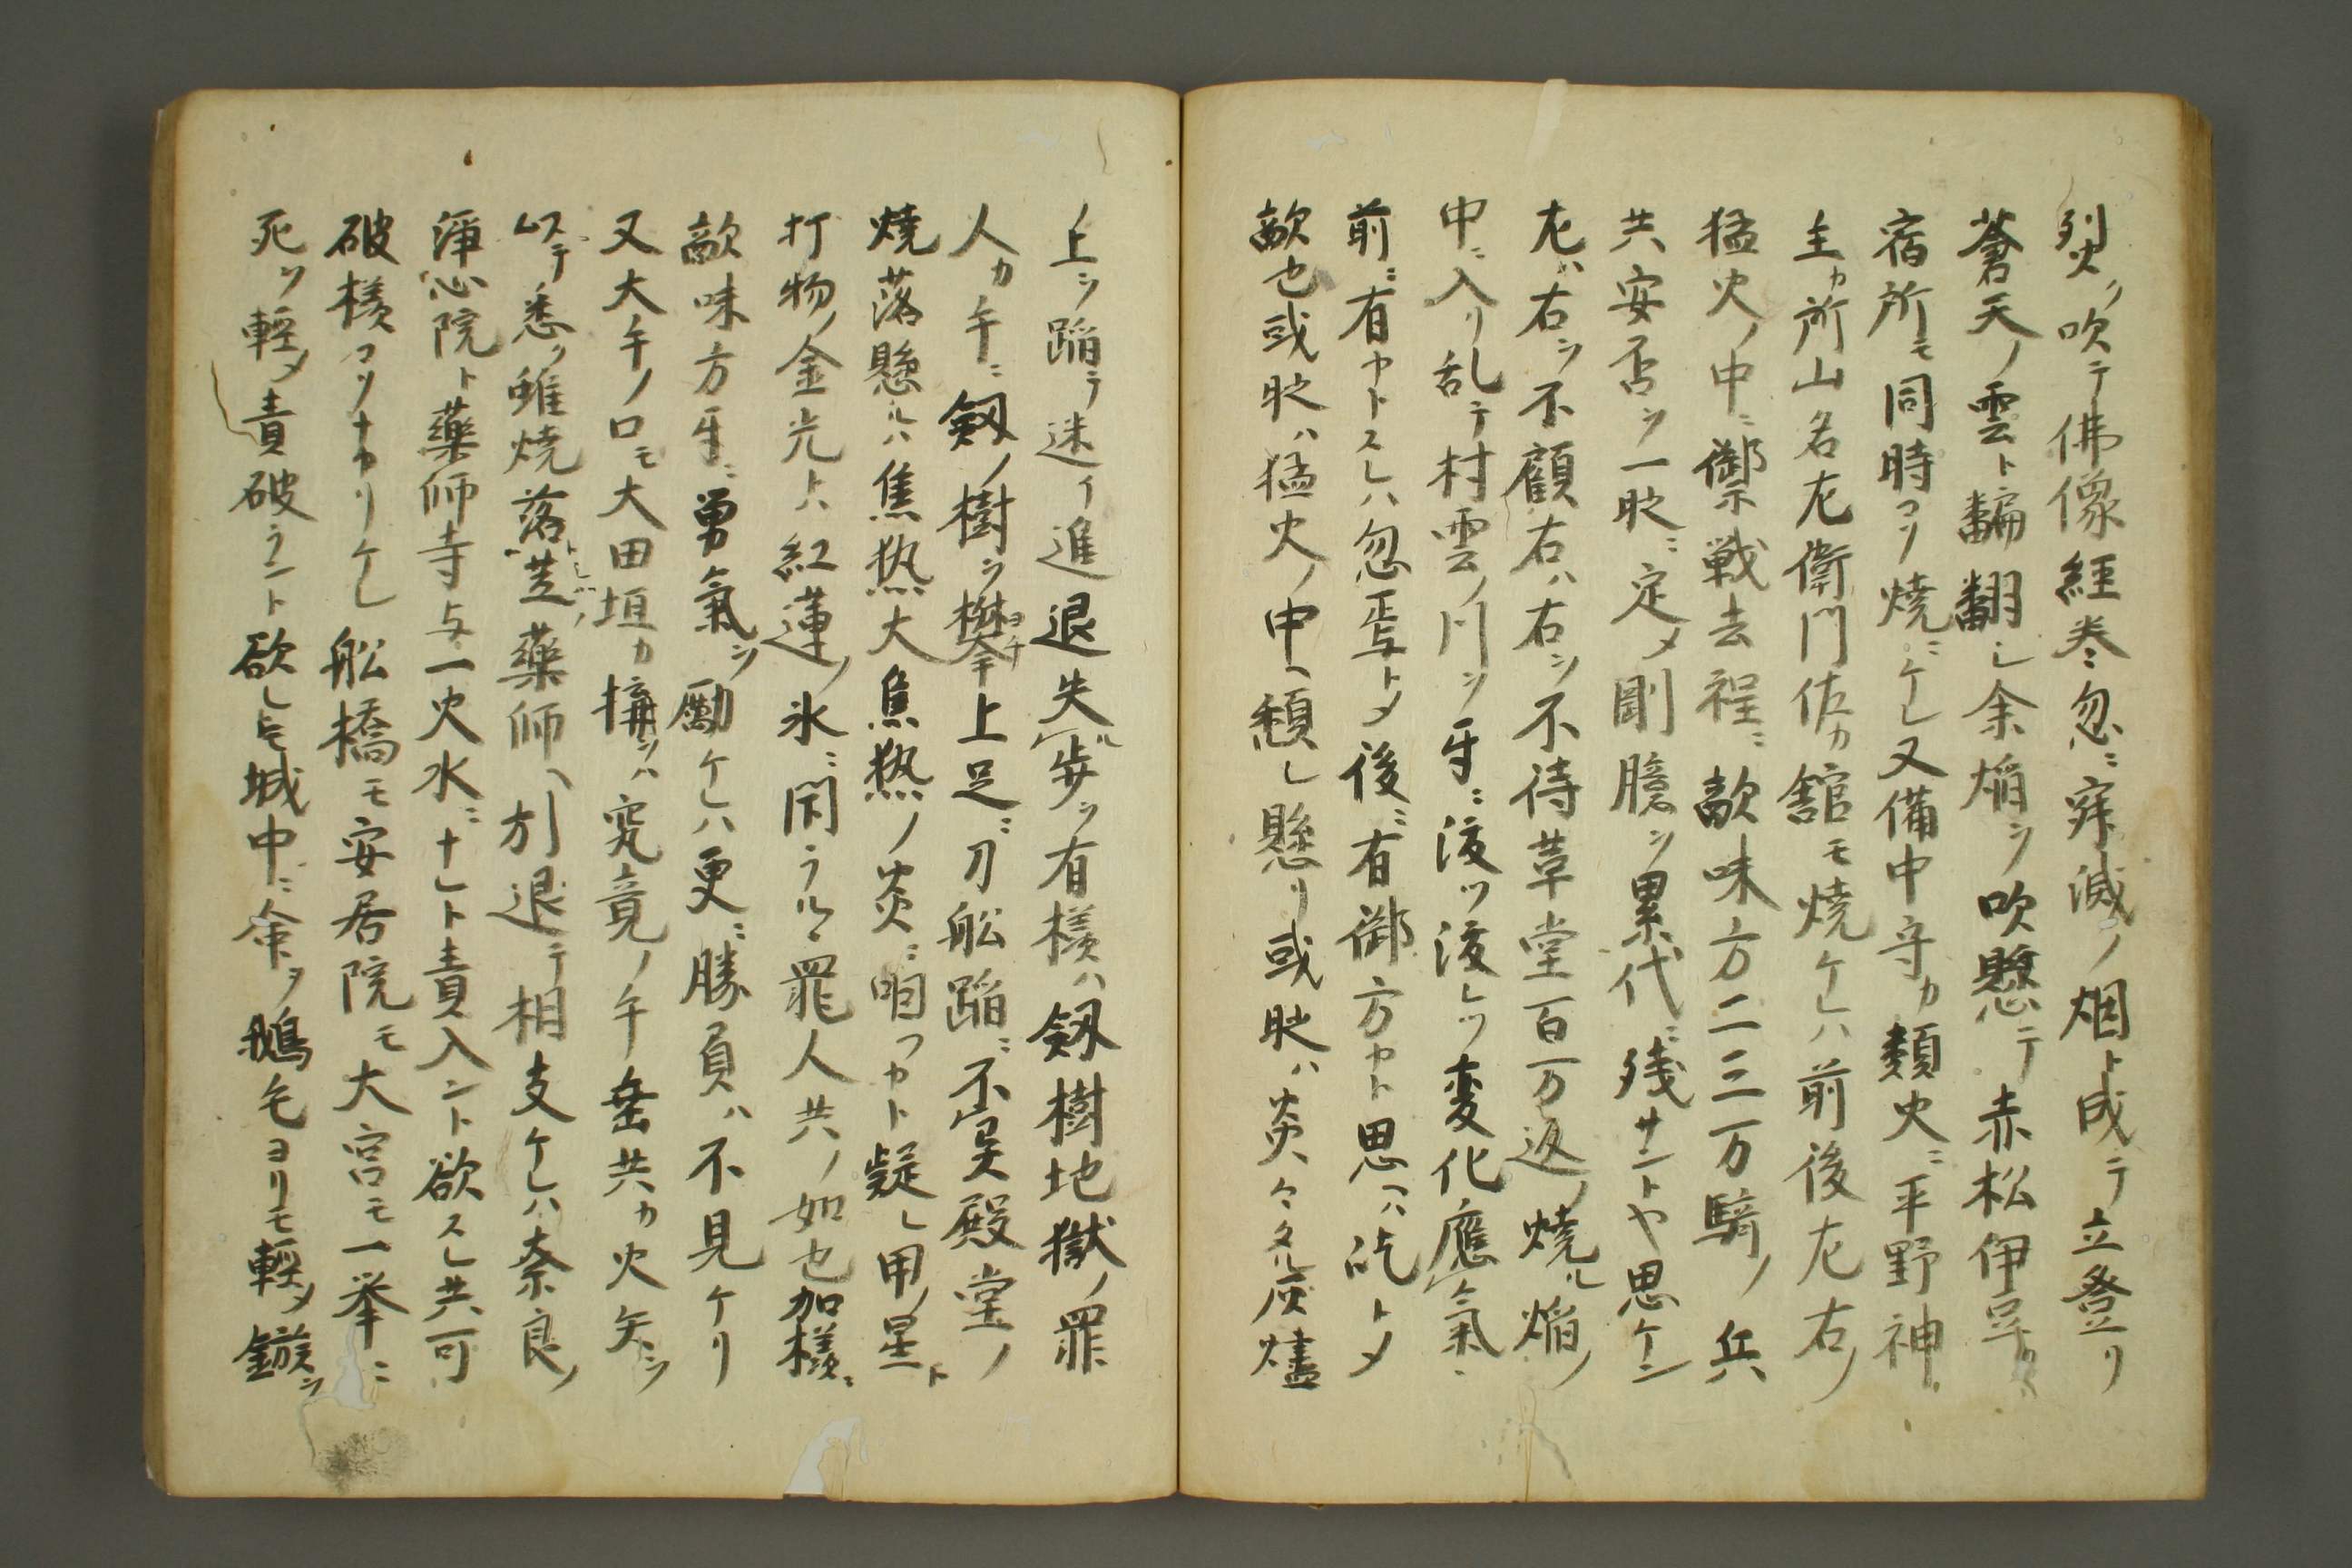 烈火ヲ吹テ佛像経巻忽ニ寂滅ノ烟ト成テ立登リ
蒼天ノ雲ト翩翻シ余焔ヲ吹懸テ赤松伊豆カ
宿所モ同時コソ焼ニケレ又備中守カ類火ニ平野神
主カ所山名左衛門佐カ舘モ焼ケレハ前後左右ノ
猛火ノ中ニ禦戦去程ニ敵味方二三万騎ノ兵
共安否ヲ一時ニ定メ剛臆ヲ累代ニ残サントヤ思ケン
左ハ右ヲ不顧右ハ右ヲ不待草堂百万返ノ焼ル焔ノ
中ニ入リ乱テ村雲ノ川ヲ牙ニ渡ツ渡レツ変化應氣
前ニ有カトスレハ忽焉トメ後ニ有御方カト思ヘハ訖トメ
敵也或時ハ猛火ノ中ヘ頽レ懸リ或時ハ炎々タル灰燼
ノ上ヲ蹈テ迷イ進退失歩ヲ有様ハ剱樹地獄ノ罪
人カ手ニ剱ノ樹ヲ攀上足ニ刀舩蹈ニ不異殿堂ノ
焼落懸ルハ焦热大焦热ノ炎ニ咽フカト疑レ甲ノ星ト
打物ノ金光トハ紅蓮ノ氷ニ閇ラルヽ罪人共ノ如也加様ニ
敵味方牙ニ勇氣ヲ勵ケレハ更ニ勝負ハ不見ケリ
又大手ノ口モ大田垣カ構ヲハ究竟ノ手垂共カ火矢ヲ
以テ悉ク雖焼落芝藥師ヘ引退テ相支ケレハ奈良ノ
浄心院ト藥師寺与一火水ニナレト責入ント欲スレ共可
破様コソナカリケレ舩橋モ安居院モ大宮モ一挙ニ
死ヲ軽メ責破ラント欲レ𪜈城中ニ命ヲ鵝毛ヨリモ軽メ鏃ヲ